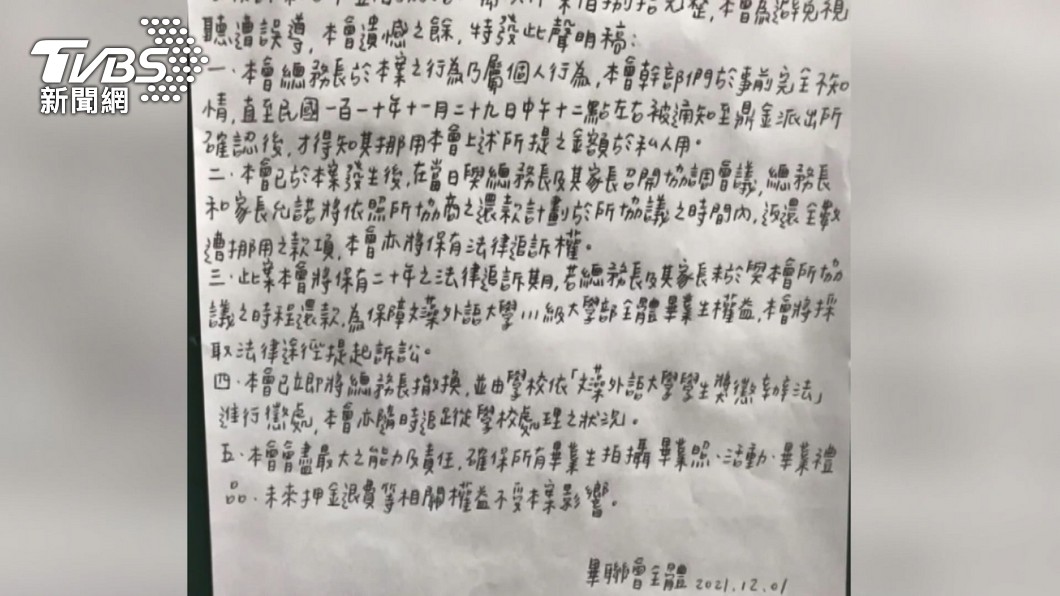 TVBS
新聞網
完整,本會為避免視
聽遭誤導,本會遺憾之餘,特發此聲明稿:
一.本會總務長於本案之行為乃屬個人行為,本會幹部們於事前完全不知
情,直至民國一百一十年十一月二十九日中午十二點左右被通知至鼎金派出所
確認後,才得知其挪用本會上述所提之金額於私人用。
二.本會已於本案發生後,在當日與總務長及其家長召開協調會議,總務長
和家長允諾將依照所協商之還款計劃於所協議之時間內,返還全數
遭挪用之款項,本會亦將保有法律追訴權。
三.此案本會將保有二十年之法律追訴期,若總務長及其家長未於與本會所協
議之時程還款,為保障文藻外語大學111級大學部全體畢業生權益,本會將採
取法律途徑提起訴訟。
四.本會已立即將總務長撤換,並由學校依「文藻外語大學學生獎懲辦法」
進行懲處,本會亦隨時追蹤學校處理之狀況。
五.本會會盡最大之能力及責任,確保所有畢業生拍攝畢業照.活動.畢業禮
品.未來押金退費等相關權益不受本案影響。
畢聯會全體 2021.12.01